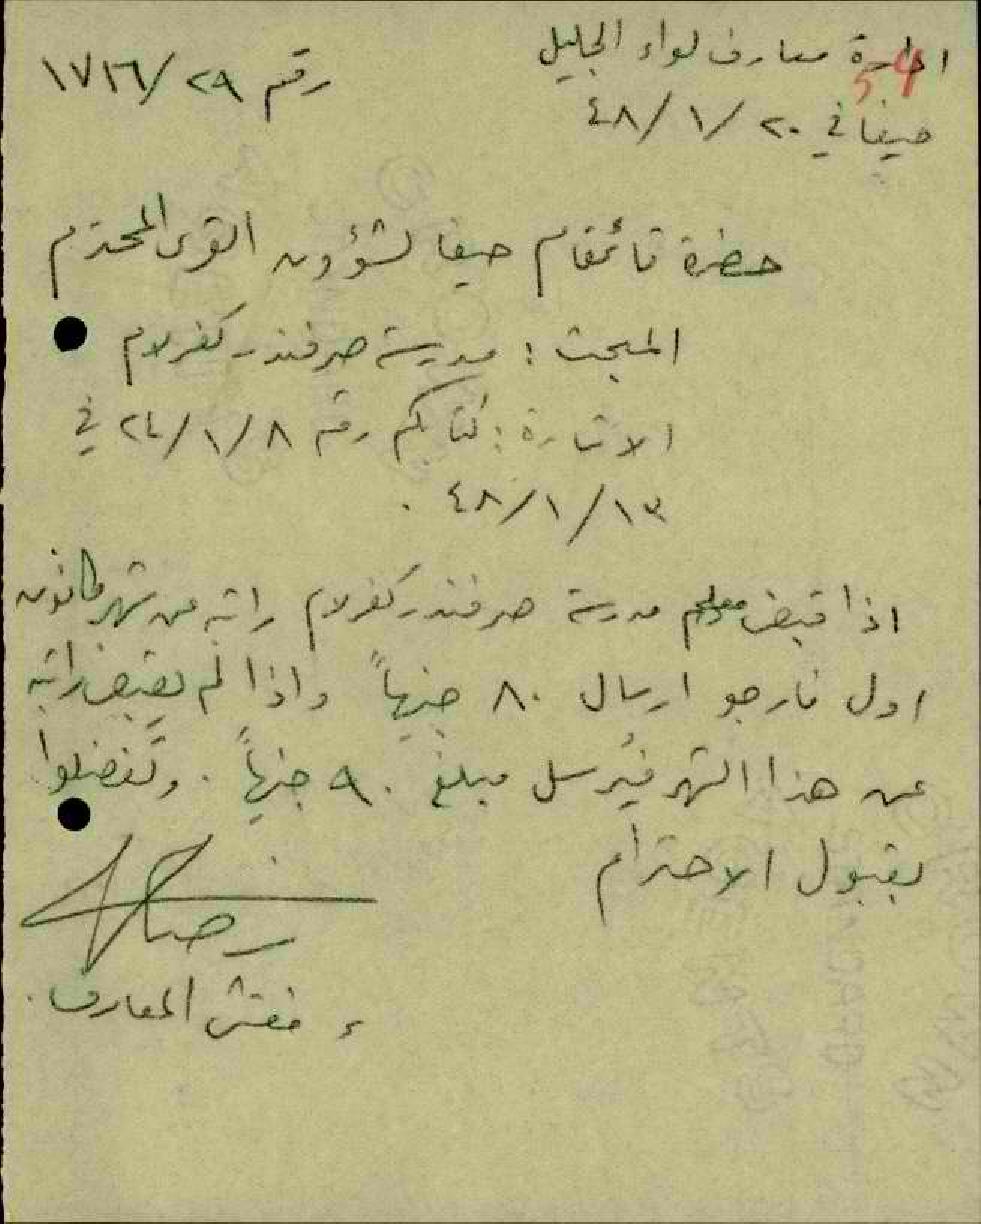 ادارة معارف لواء الجليل
رقم ١٧١٦/٢٩
54
حيفا في ٢٠/١/٤٨
حضرة قائمقام حيفا لشؤون القرى المحترم
المبحث : مدرسة صرفند - كفرلام
الاشارة : كتابكم رقم ٢٤/١/٨ في
٤٨/١/١٣ .
اذا قبض معلم مدرسة صرفند - كفرلام راتبه عن شهر كانون
اول فارجو ارسال ٨٠ جنيهاً واذا لم يقبض راتبه
عن هذا الشهر فيُرسل مبلغ ٩٠ جنيهاً . وتفضلوا
بقبول الاحترام
ء مفتش المعارف .